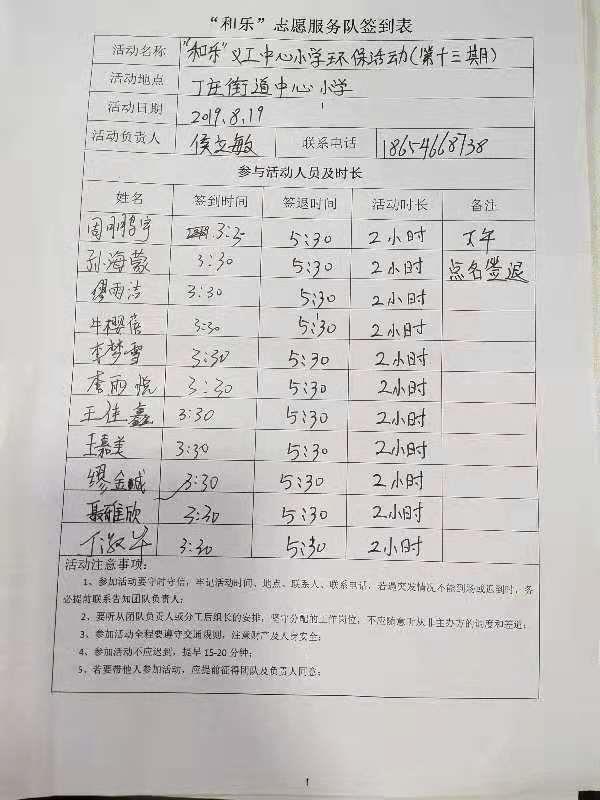 “和乐”志愿服务队签到表
活动名称 “和乐”义工中心小学环保活动(第十三期)
活动地点 丁庄街道中心小学
活动日期 2019.8.19
活动负责人 侯立敏 联系电话 18654668738
参与活动人员及时长
姓名 签到时间 签退时间 活动时长 备注
周鹏宇 5:30 2小时 下午
孙海蒙 3:30 5:30 2小时 点名签退
缪雨洁 3:30 5:30 2小时
牛樱蓓 3:30 5:30 2小时
李梦雪 3:30 5:30 2小时
李丽悦 3:30 5:30 2小时
王佳鑫 3:30 5:30 2小时
王嘉美 3:30 5:30 2小时
缪金城 3:30 5:30 2小时
聂雅欣 3:30 5:30 2小时
3:30 5:30 2小时
活动注意事项:
1、参加活动要守时守信，牢记活动时间、地点、联系人、联系电话，若遇突发情况不能到场或迟到时，务
必提前联系告知团队负责人;
2、要听从团队负责人或分工后组长的安排，坚守分配的工作岗位，不应随意听从非主办方的调度和差遣;
3、参加活动全程要遵守交通规则，注意财产及人身安全;
4、参加活动不应迟到，提早 15-20 分钟;
5、若要带他人参加活动，应提前征得团队及负责人同意;
1